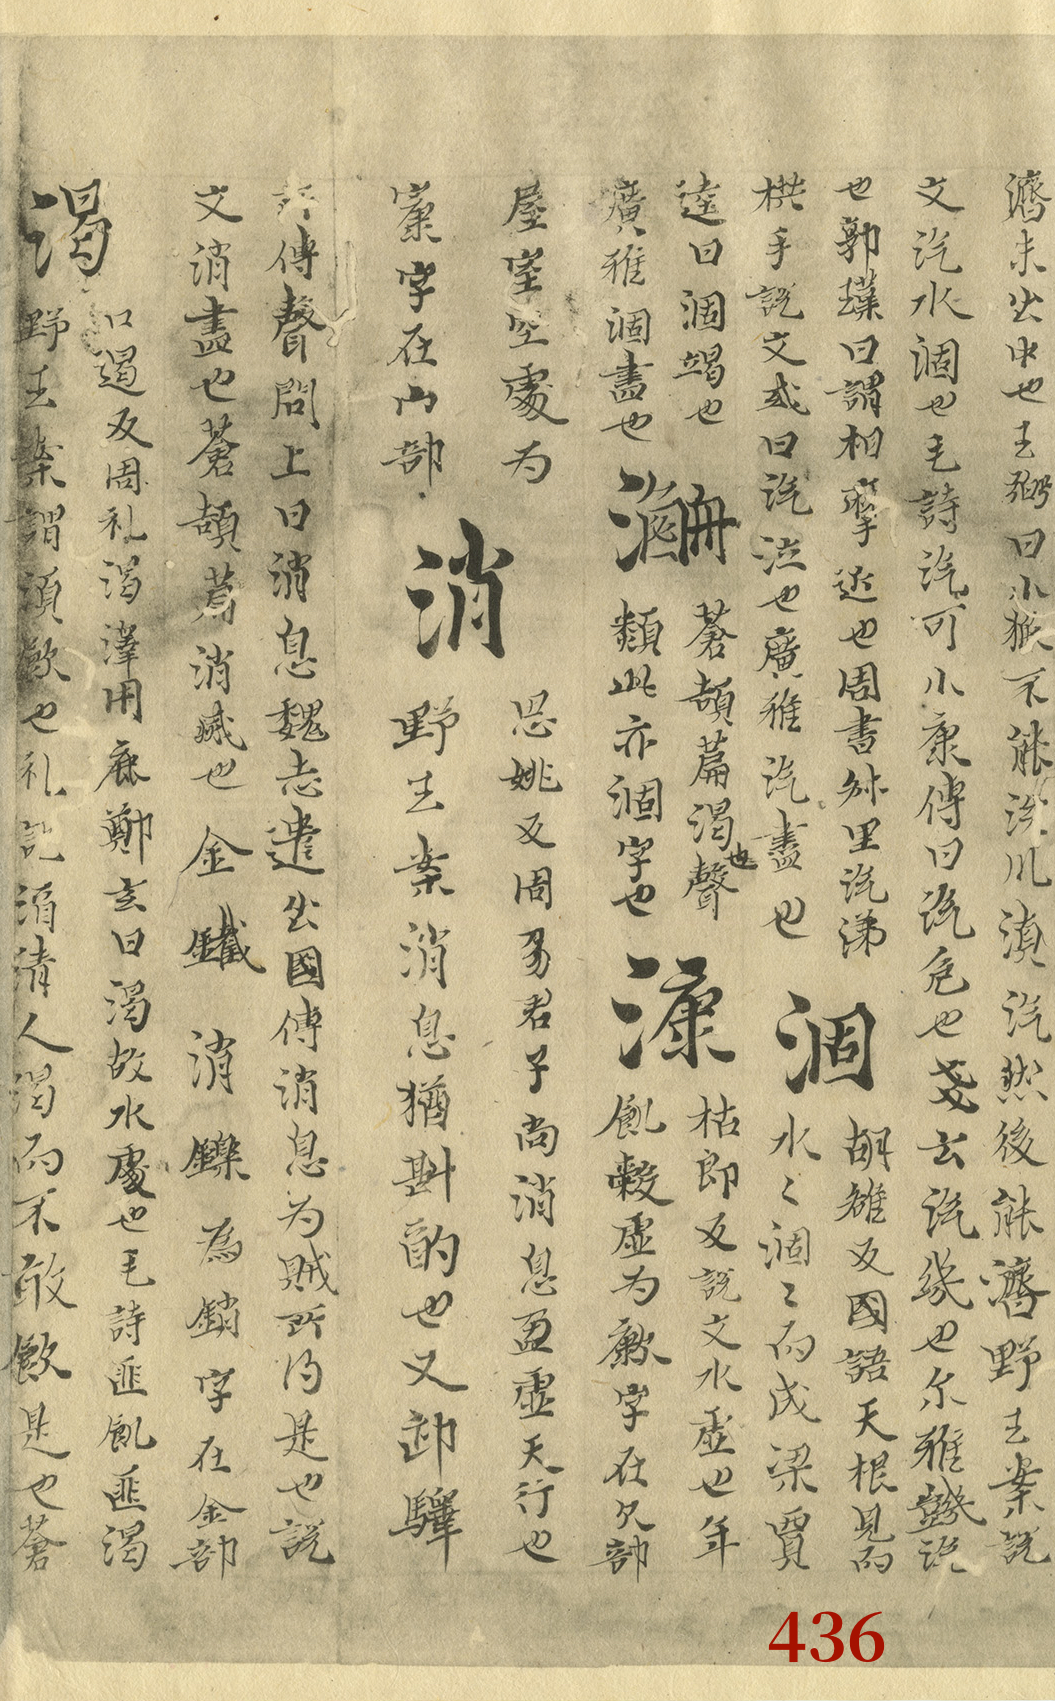 濟未出中也王弼曰小狐不能涉川湏汔然後能濟野王案說
文汔水涸也毛詩汔可小康傳曰汔危也戔云汔幾也尔雅䥓汔
也郭璞曰謂相摩近也周書舛里汔涕
栱手說文或曰汔泣也廣雅汔盡也
涸胡雒反國語天根見而
水〻涸〻而成梁賈
逵曰涸竭也
廣雅涸盡也
蒼頡篇渴聲也
類此亦涸字也
漮枯郎反說文水虛也年
飢榖虛为歉字在欠部
屋室空處为
䆲字在山部
消思姚反周易君子尚消息盈虛天行也
野王案消息猶斟酌也又卸驛
傳聲問上曰消息魏志遣出國傳消息为賊所得是也說
文消盡也蒼頡萹消滅也金鐵消鑠為銷字在金部
渴口遏反周礼渴澤用鹿鄭玄曰渴故水處也毛詩匪飢匪渴
野王案謂湏飲也礼記酒清人渴而不敢飲是也蒼
436